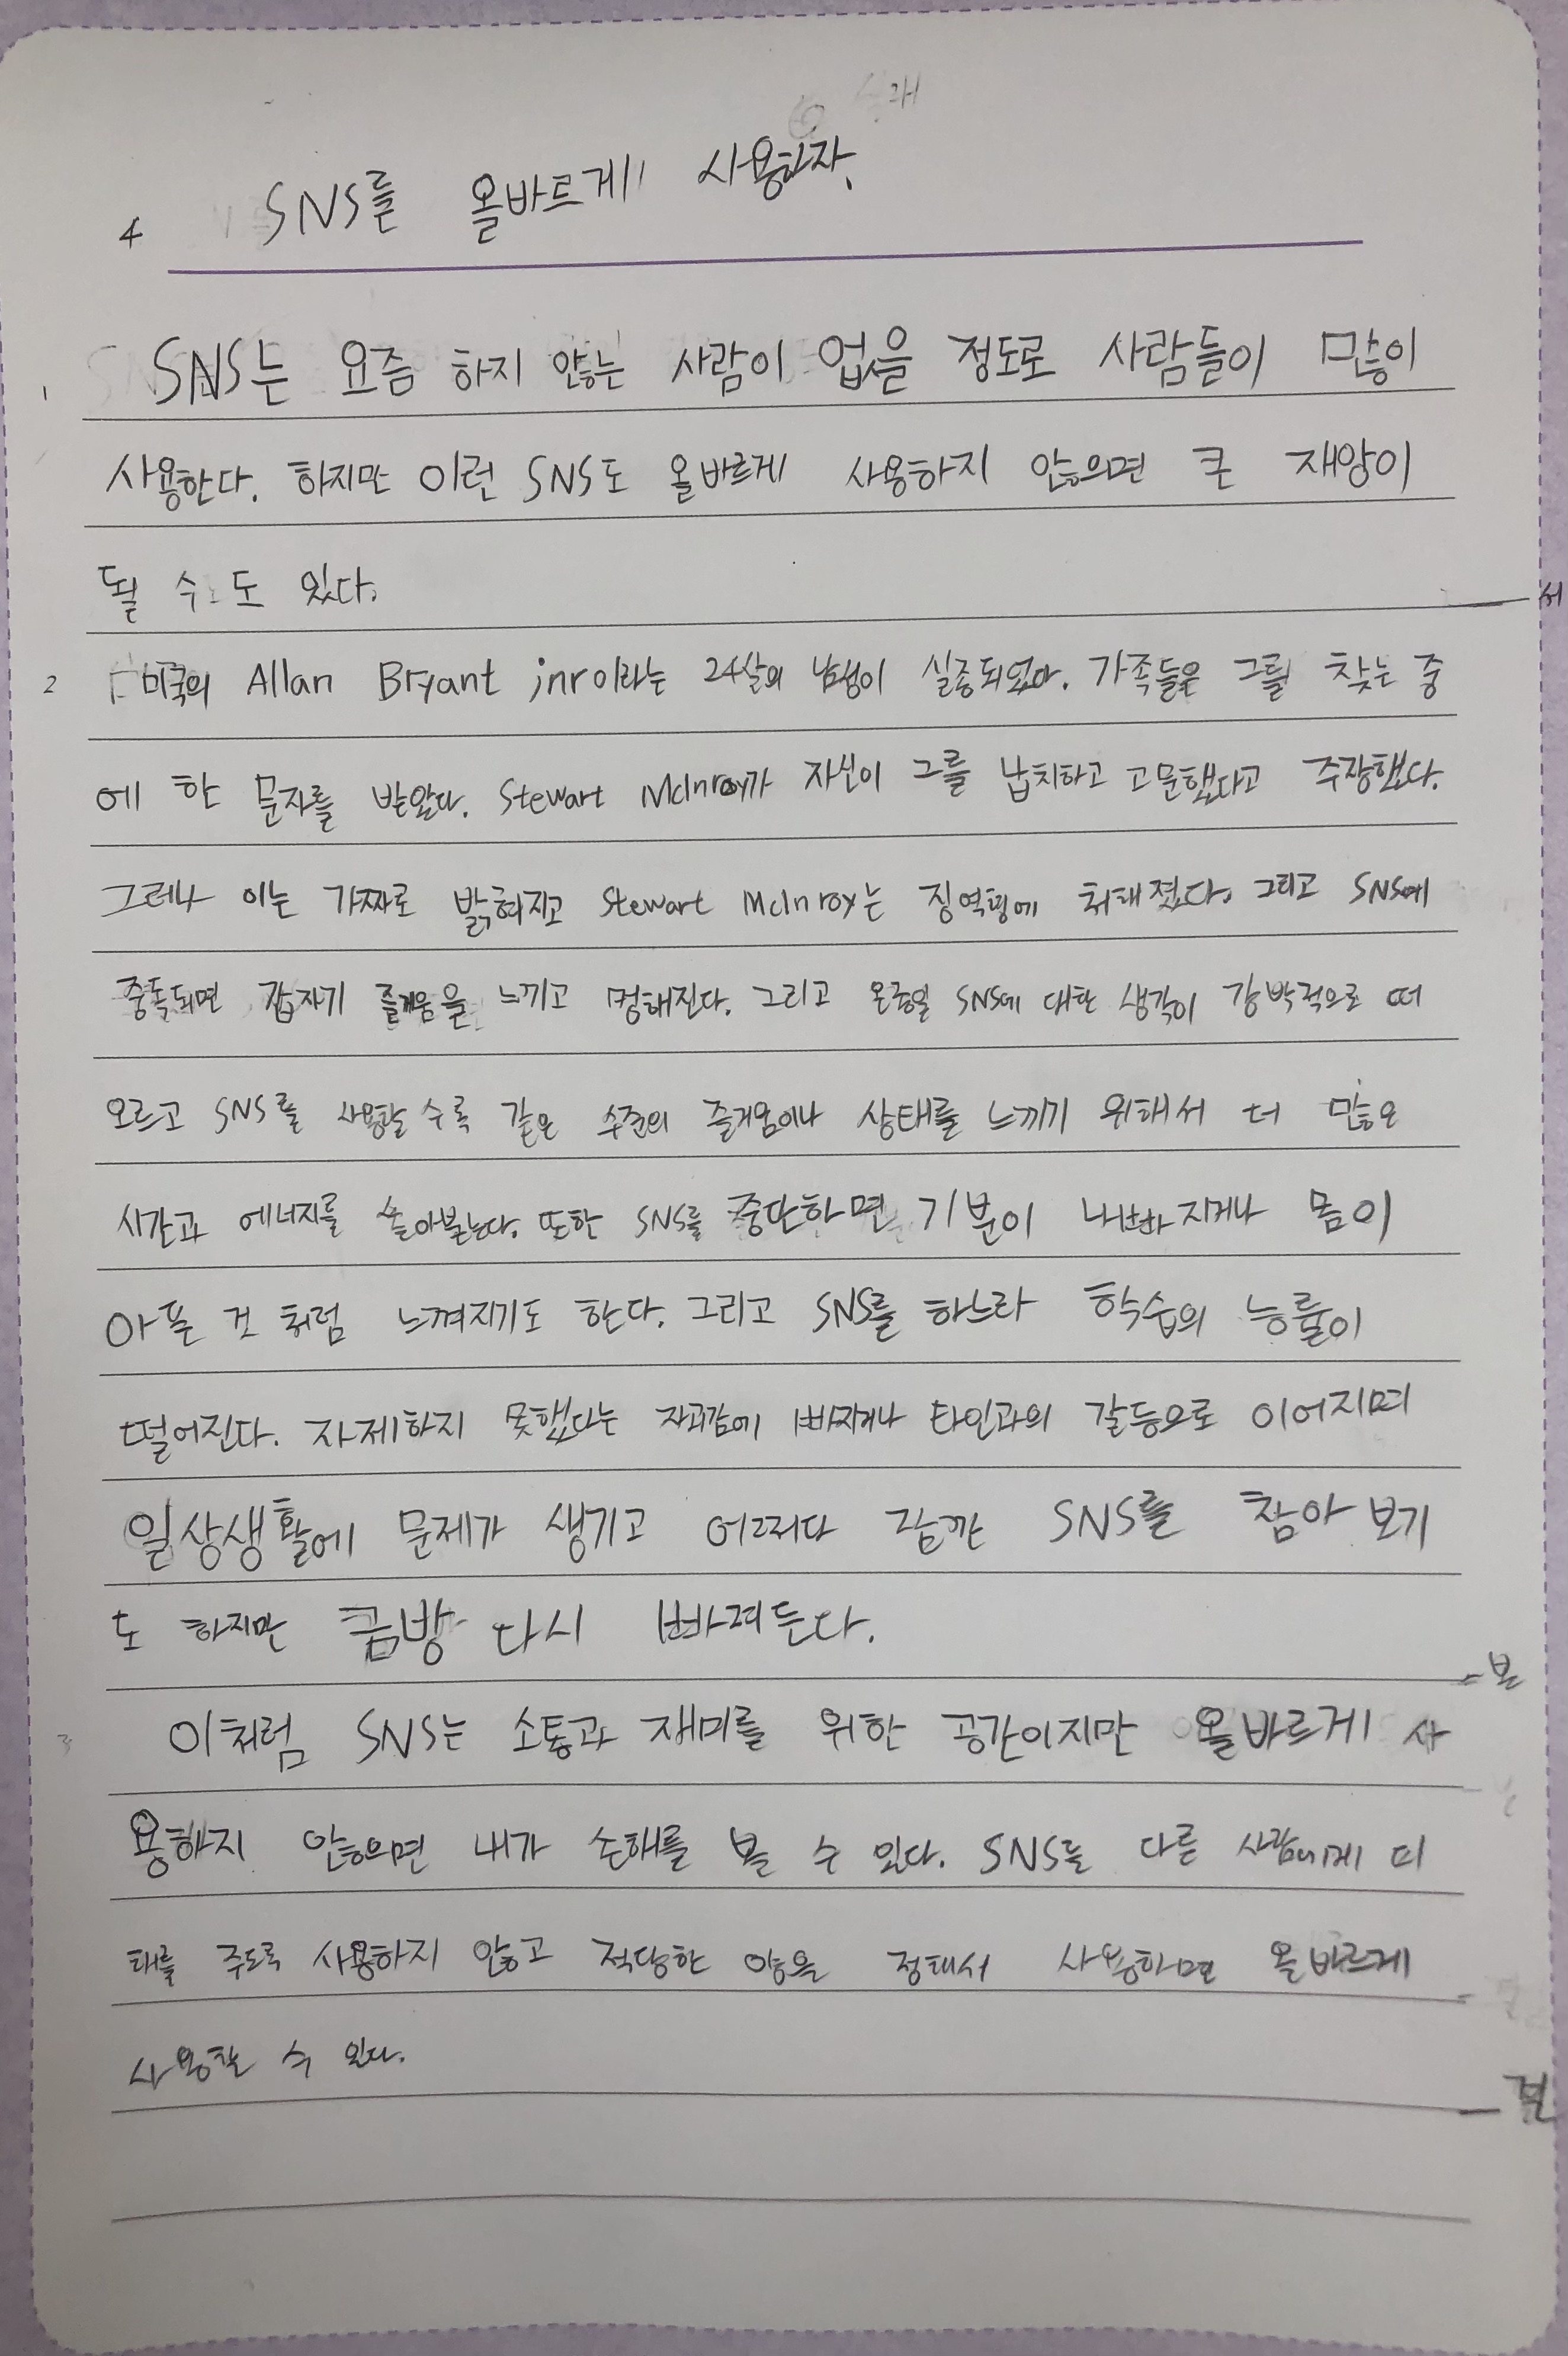 4 SNS를 올바르게 사용하자.
1 SNS는 요즘 하지 않는 사람이 없을 정도로 사람들이 많이
사용한다. 하지만 이런 SNS도 올바르게 사용하지 않으면 큰 재앙이
될 수도 있다.
서
2 미국의 Allan Bryant jnr이라는 24살의 남성이 실종되었다. 가족들은 그를 찾는 중
에 한 문자를 받았다. Stewart McInroy가 자신이 그를 납치하고 고문했다고 주장했다.
그러나 이는 가짜로 밝혀지고 Stewart McInroy는 징역형에 처해졌다. 그리고 SNS에
중독되면 갑자기 즐거움을 느끼고 멍해진다. 그리고 온종일 SNS에 대한 생각이 강박적으로 떠
오르고 SNS를 사용할수록 같은 수준의 즐거움이나 상태를 느끼기 위해서 더 많은
시간과 에너지를 쏟아붓는다. 또한 SNS를 중단하면 기분이 나빠지거나 몸이
아픈 것 처럼 느껴지기도 한다. 그리고 SNS를 하느라 학습의 능률이
떨어진다. 자제하지 못했다는 자괴감에 빠지거나 타인과의 갈등으로 이어지며
일상생활에 문제가 생기고 어쩌다 잠깐 SNS를 참아 보기
도 하지만 금방 다시 빠져든다.
본
3 이처럼 SNS는 소통과 재미를 위한 공간이지만 올바르게 사
용하지 않으면 내가 손해를 볼 수 있다. SNS를 다른 사람에게 피
해를 주도록 사용하지 않고 적당한 양을 정해서 사용하면 올바르게
사용할 수 있다.
결